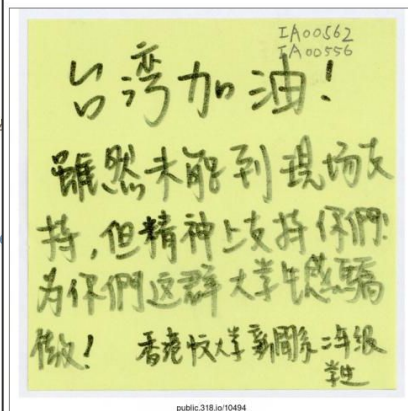 IA00562
IA00556
台湾加油!
雖然未能到現场支
持,但精神上支持你們!
为你們这群大学生感驕
傲! 香港牧大学新聞系二年級
学生
public.318.io/10494